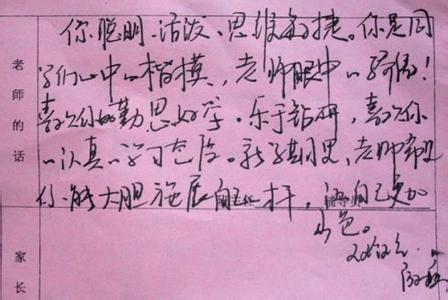 你聪明、活泼、思维敏捷。你是同
学们心中的楷模，老师眼中的骄傲！
喜欢你的勤思好学、乐于钻研，喜欢你
的认真的学习态度。新学期里，老师希望
你能大胆施展自己的才华，让自己更加
出色。
老师的话
家长